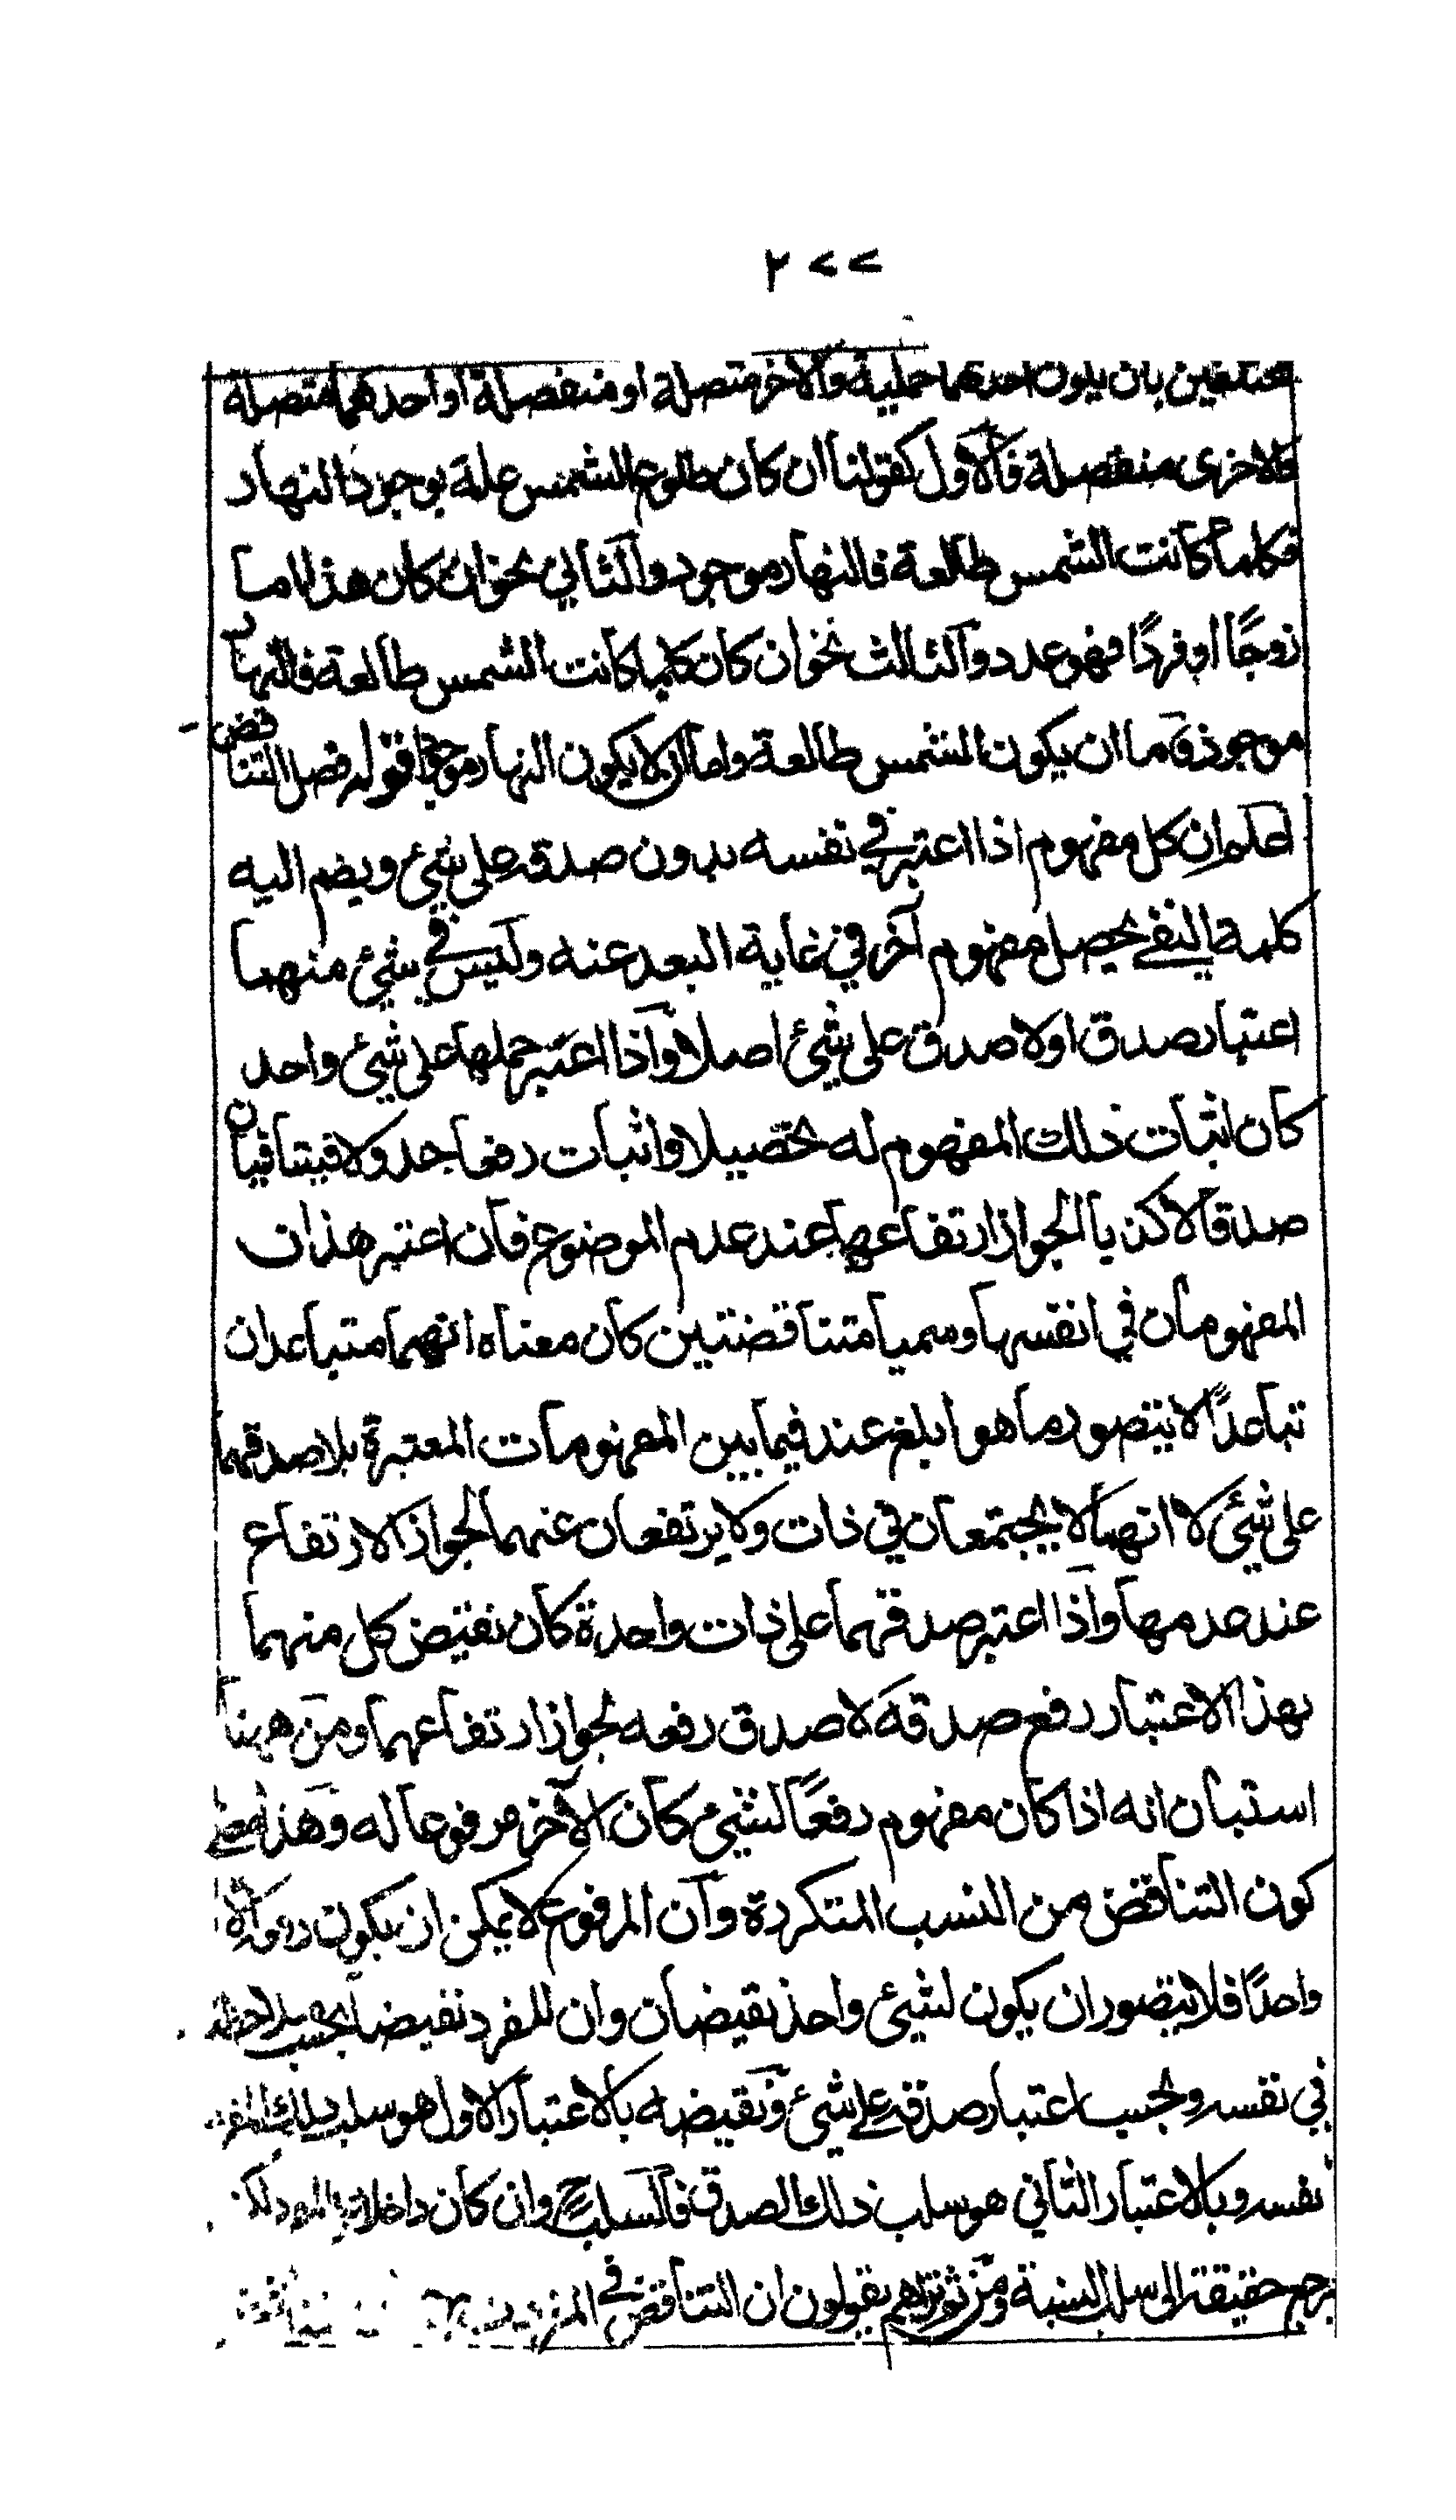 ٢٧٧
مختلفين بان يكون احدهما حملية والاخر متصلة او منفصلة او احدهما متصلة
والاخرى منفصلة فالاول كقولنا ان كان طلوع الشمس علة بوجود النهار
فكلما كانت الشمس طالعة فالنهار موجود والثاني نحو ان كان هذا اما
زوجًا او فردًا فهو عدد والثالث نحو ان كان كلما كانت الشمس طالعة فالنهار
موجود فاما ان يكون الشمس طالعة واما ان لا يكون النهار موجودا قوله فصل التناقض
اعلم ان كل مفهوم اذا اعتبر في نفسه بدون صدقه على شئ ويضم اليه
كلمة النفي يحصل مفهوم آخر في غاية البعد عنه وليس في شئ منهما
اعتبار صدق اولا صدق على شئ اصلا واذا اعتبر حملها على شئ واحد
كان اثبات ذلك المفهوم له تحصيلا واثبات رفعا جدولا فيتنافيان
صدقا لا كذبا الجواز ارتفاعهما عند عدم الموضوع فان اعتبر هذان
المفهومان في انفسها وسميا متناقضتين كان معناه انهما متباعدان
تباعدًا لا يتصور ما هو ابلغ عند فيما بين المفهومات المعتبرة بلا صدقهما
على شئ لا انهما لا يجتمعان في ذات ولا يرتفعان عنهما لجواز الارتفاع
عند عدمها واذا اعتبر صدقهما على ذات واحدة كان نقيض كل منهما
بهذا الاعتبار رفع صدقه لا صدق رفعه لجواز ارتفاعهما ومن ههنا
استبان انه اذا كان مفهوم رفعًا لشئ كان الآخر مرفوعا له وهذا معنى
كون التناقض من النسب المتكررة وان المرفوع لا يمكن ان يكون رفعه الا
واحدًا فلا يتصور ان يكون لشئ واحد نقيضان وان للمفرد نقيضا بحسب ملاحظته
في نفسه وبحسب اعتبار صدقه على شئ ونقيضه بالاعتبار الاول هو سلب ذلك المفرد
نفسه وبالاعتبار الثاني هو سلب ذلك الصدق فالسلب ح وان كان داخلا
يرجع حقيقة الى سلب النسبة ومن ثم تراهم يقولون ان التناقض في